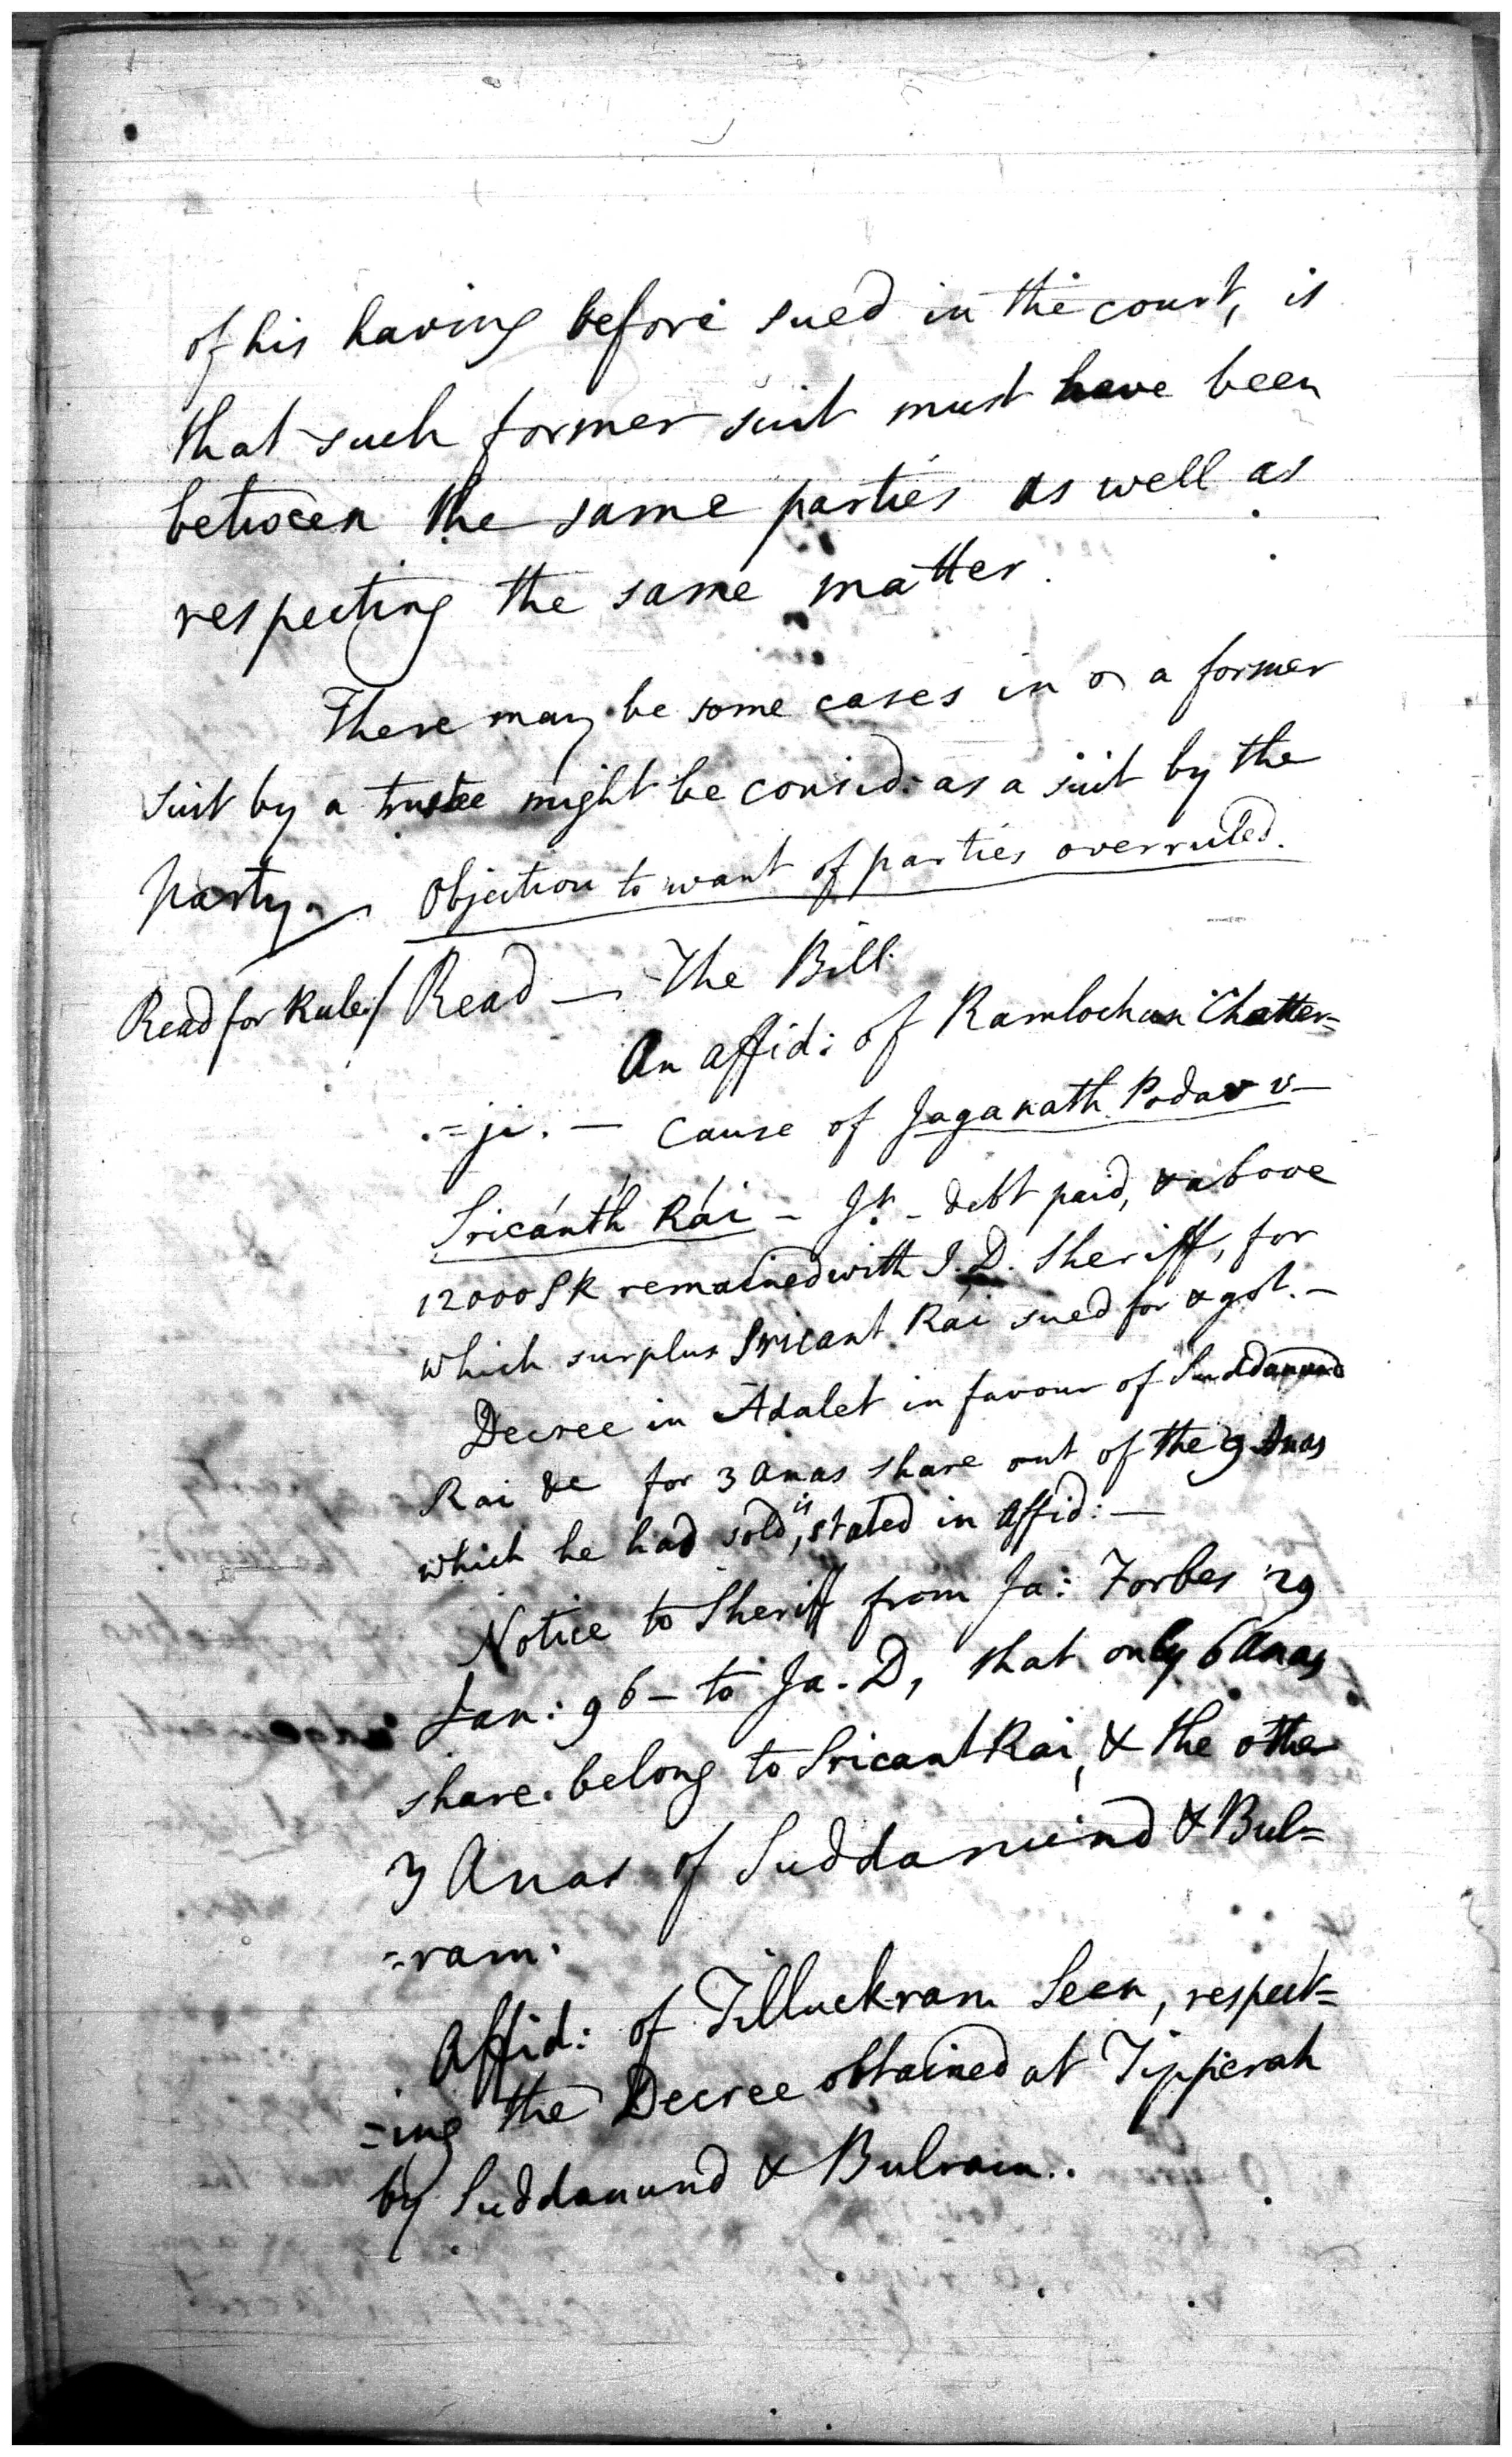 of his having before sued in the court, is
that such former suit must have been
between the same parties as well as
respecting the same matter.
There may be some cases in a former
suit by a trustee might be consid: as a suit by the
party. Objection to want of parties overruled.
Read for Rule/ Read — The Bill.
An affid: of Ramlochan Chatter=
=ji. — Cause of Jaganath Podar v—
Sricánth Rái — Jt. — debt paid, & above
12000 SR remained with J. D. Sheriff, for
which surplus Sricant Rái sued for & got. —
Decree in Adalet in favour of Suddanund
Rai &c for 3 anas share out of the 9 Anas
which he had sold, is stated in Affid: —
Notice to Sheriff from Ja: Forbes 29
Jan: 96 — to Ja. D, that only 6 Anas
share belong to Sricant Rai, & the other
3 Anas of Suddanund & Bul=
=ram.
Affid: of Tilluckram Seen, respect=
=ing the Decree obtained at Tipperah
by Suddanund & Bulram.